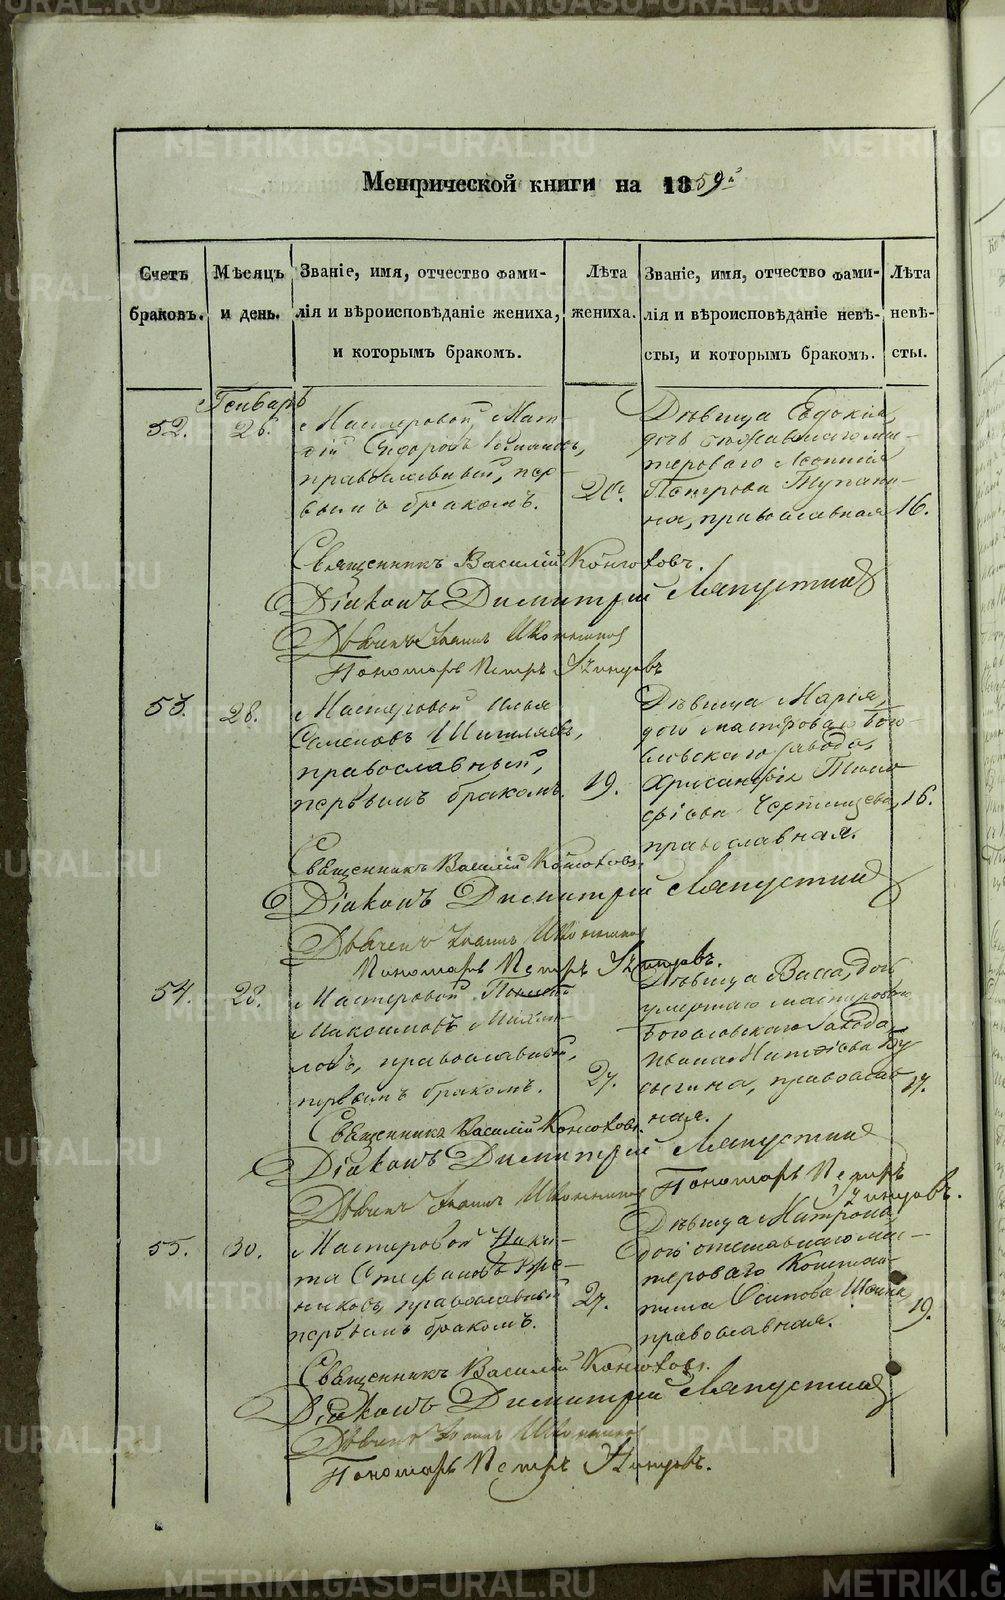 Метрической книги на 1859й
Счетъ браковъ.
Мѣсяцъ и день.
Званіе, имя, отчество фами-
лія и вѣроисповѣданіе жениха,
и которымъ бракомъ.
Лѣта жениха.
Званіе, имя, отчество фами-
лія и вѣроисповѣданіе невѣ-
сты, и которымъ бракомъ.
Лѣта невѣ-
сты.
Генварь
52.
26.
Мастеровой Мат-
ѳій Сидоровъ
православный, пер
вымъ бракомъ.
20.
Дѣвица Евдокія,
мас-
тероваго Леонтія
Петрова
на, православная
16.
Священникъ Василій Конюховъ.
Діаконъ Димитрій Ляпустинъ
Дьячекъ Іоаннъ Иконников
Пономарь Петръ
53.
28.
Мастеровой Илья
Семеновъ Шишляевъ,
православный,
первымъ бракомъ.
19.
Дѣвица Марія,
дочь мастероваго Бого-
словскаго завода,
Хрисанфія Тимо
фіева
православная.
16.
Священникъ Василій Конюховъ.
Діаконъ Димитрій Ляпустинъ
Дьячекъ Іоаннъ Иконников
Пономарь Петръ
54.
28.
Мастеровой
Максимовъ
ловъ, православный,
первымъ бракомъ.
27.
Дѣвица Васса, дочь
умершаго мастероваго
Богословскаго завода,
Ивана Матѳіева Бу
сыгина, православ
ная.
17.
Священникъ Василій Конюховъ.
Діаконъ Димитрій Ляпустинъ
Дьячекъ Іоаннъ Иконников
Пономарь Петръ
55.
30.
Мастеровой Ники-
та Стефановъ
никовъ, православный
первымъ бракомъ.
27.
Дѣвица Матрона,
дочь отставнаго мас-
тероваго Констан-
тина Осипова
православная.
19.
Священникъ Василій Конюховъ.
Діаконъ Димитрій Ляпустинъ
Дьячекъ Іоаннъ Иконников
Пономарь Петръ
METRIKI.GASO-URAL.RU